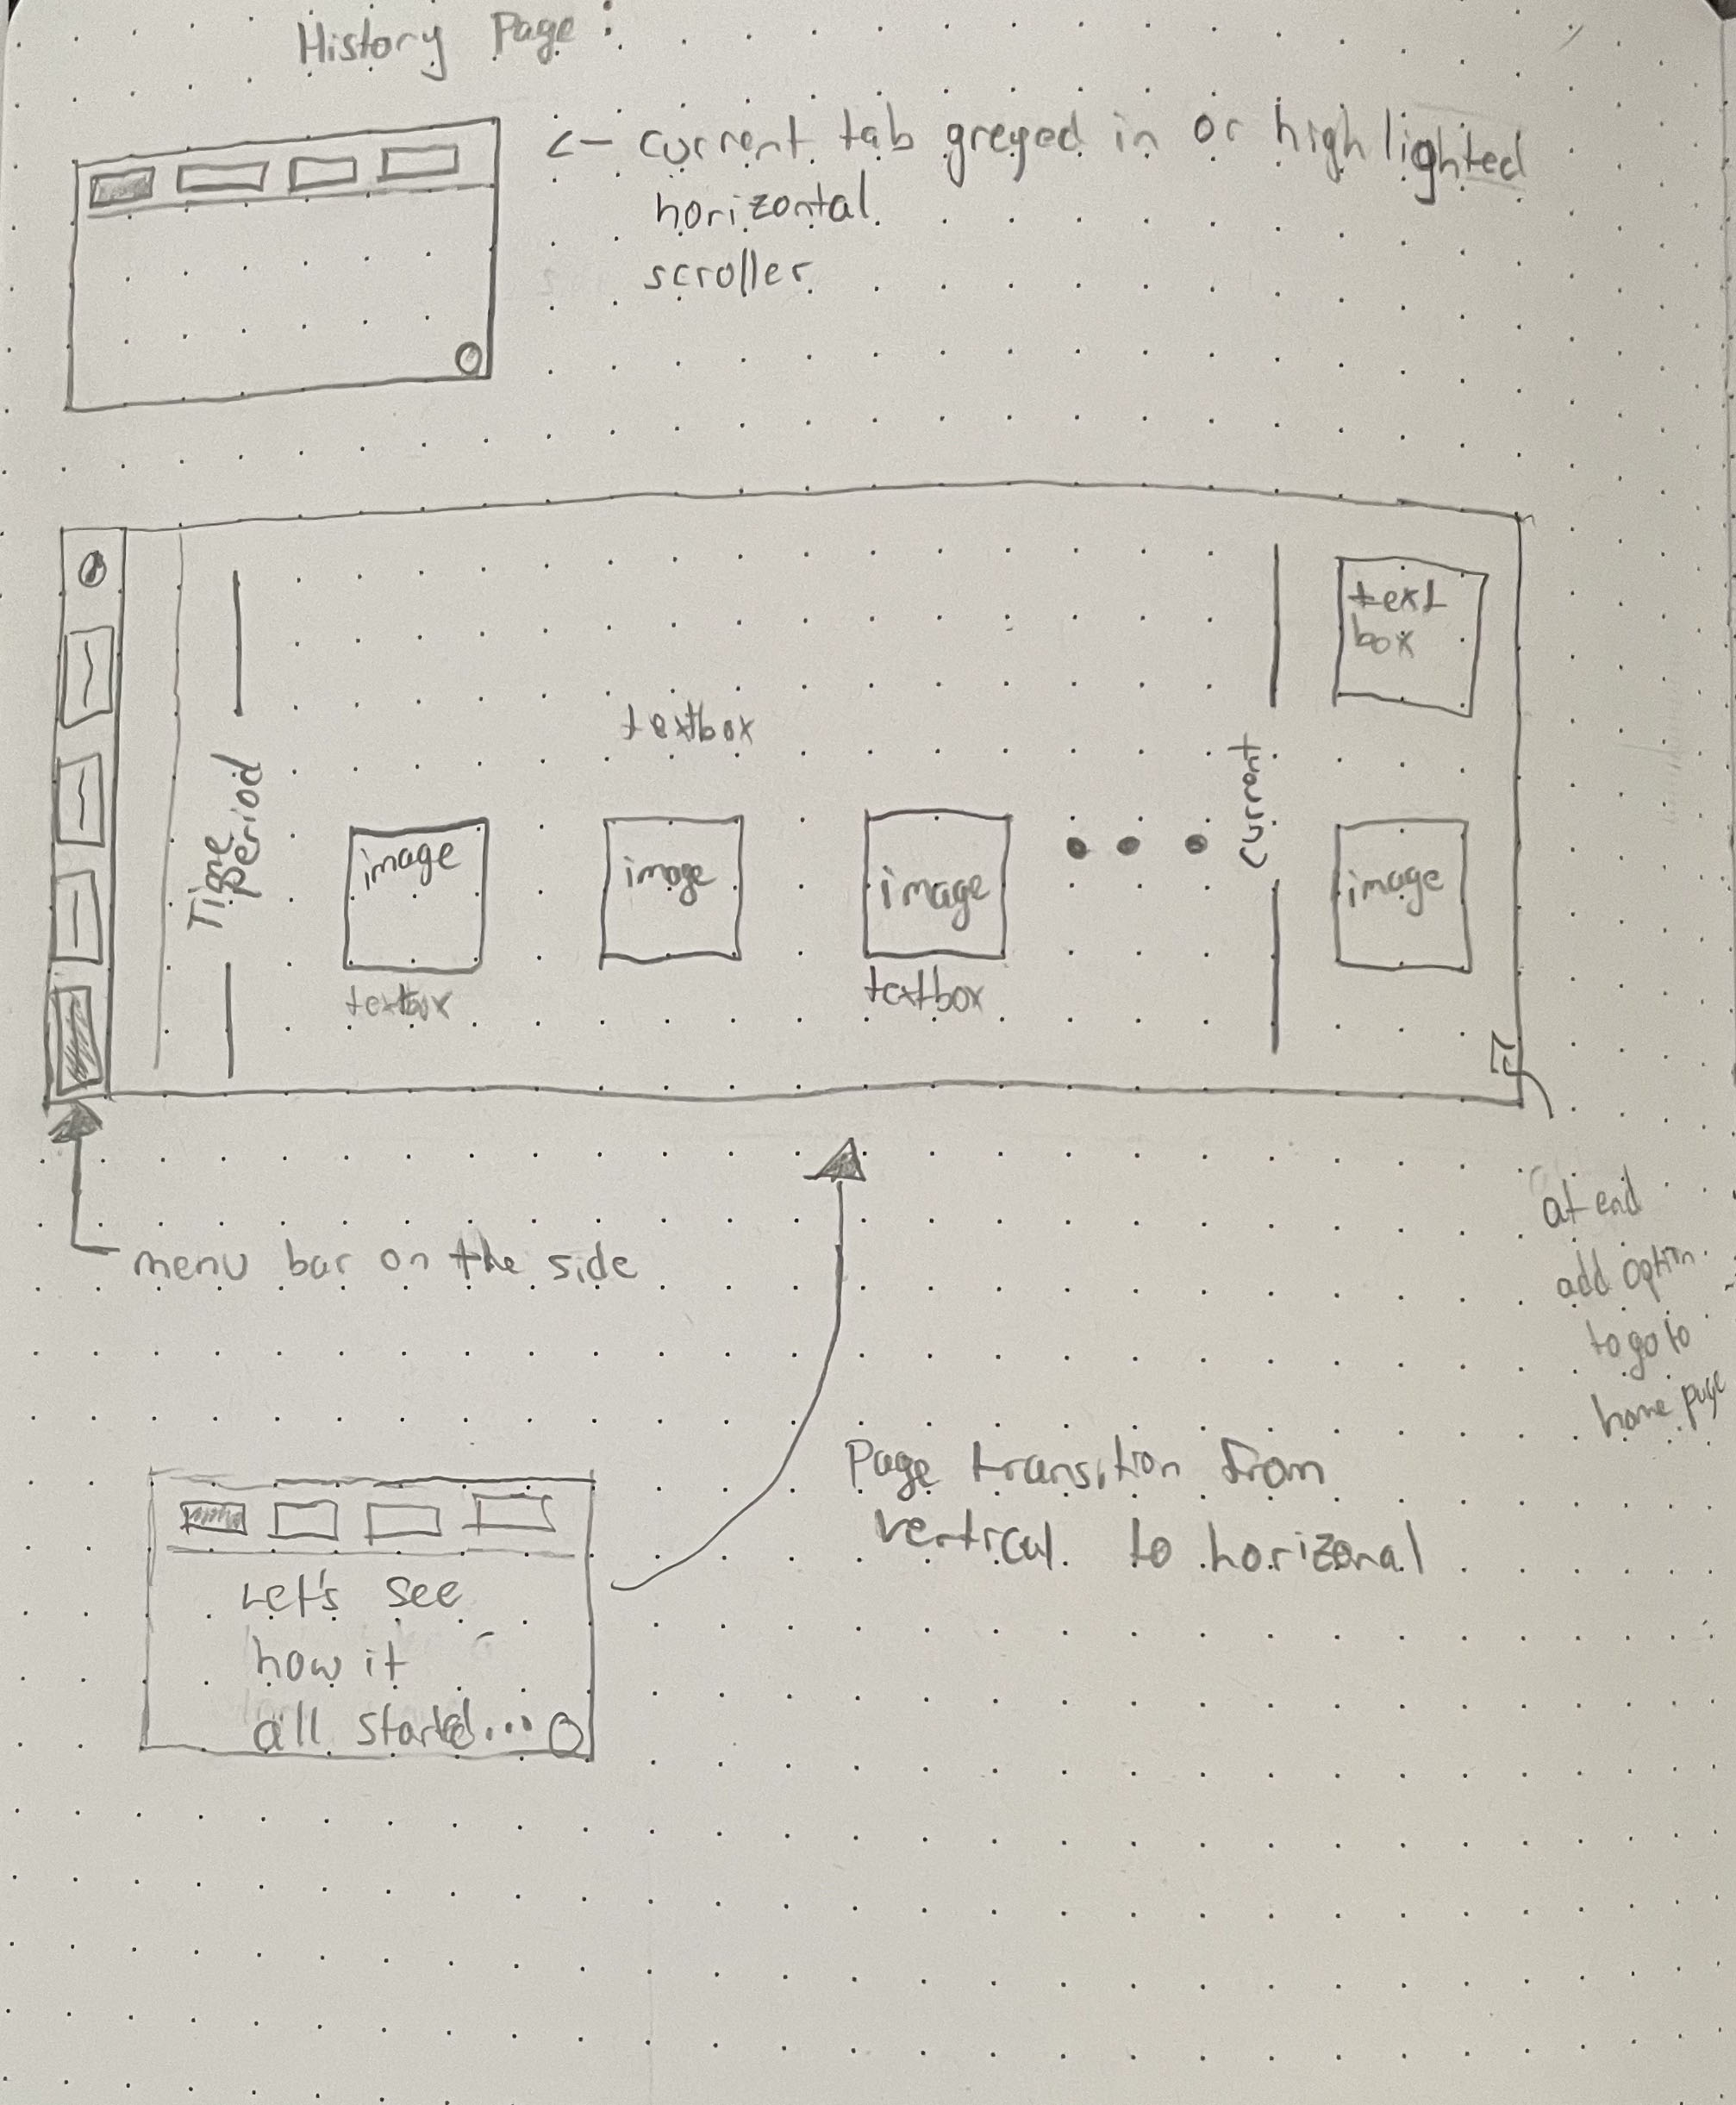 History Page:
<- current tab greyed in or highlighted
horizontal
scroller
text
box
textbox
Time
period
current
image
image
image
image
textbox
textbox
menu bar on the side
at end
add option
to go to
home page
Page transition from
vertical to horizonal
Let's see
how it
all started...